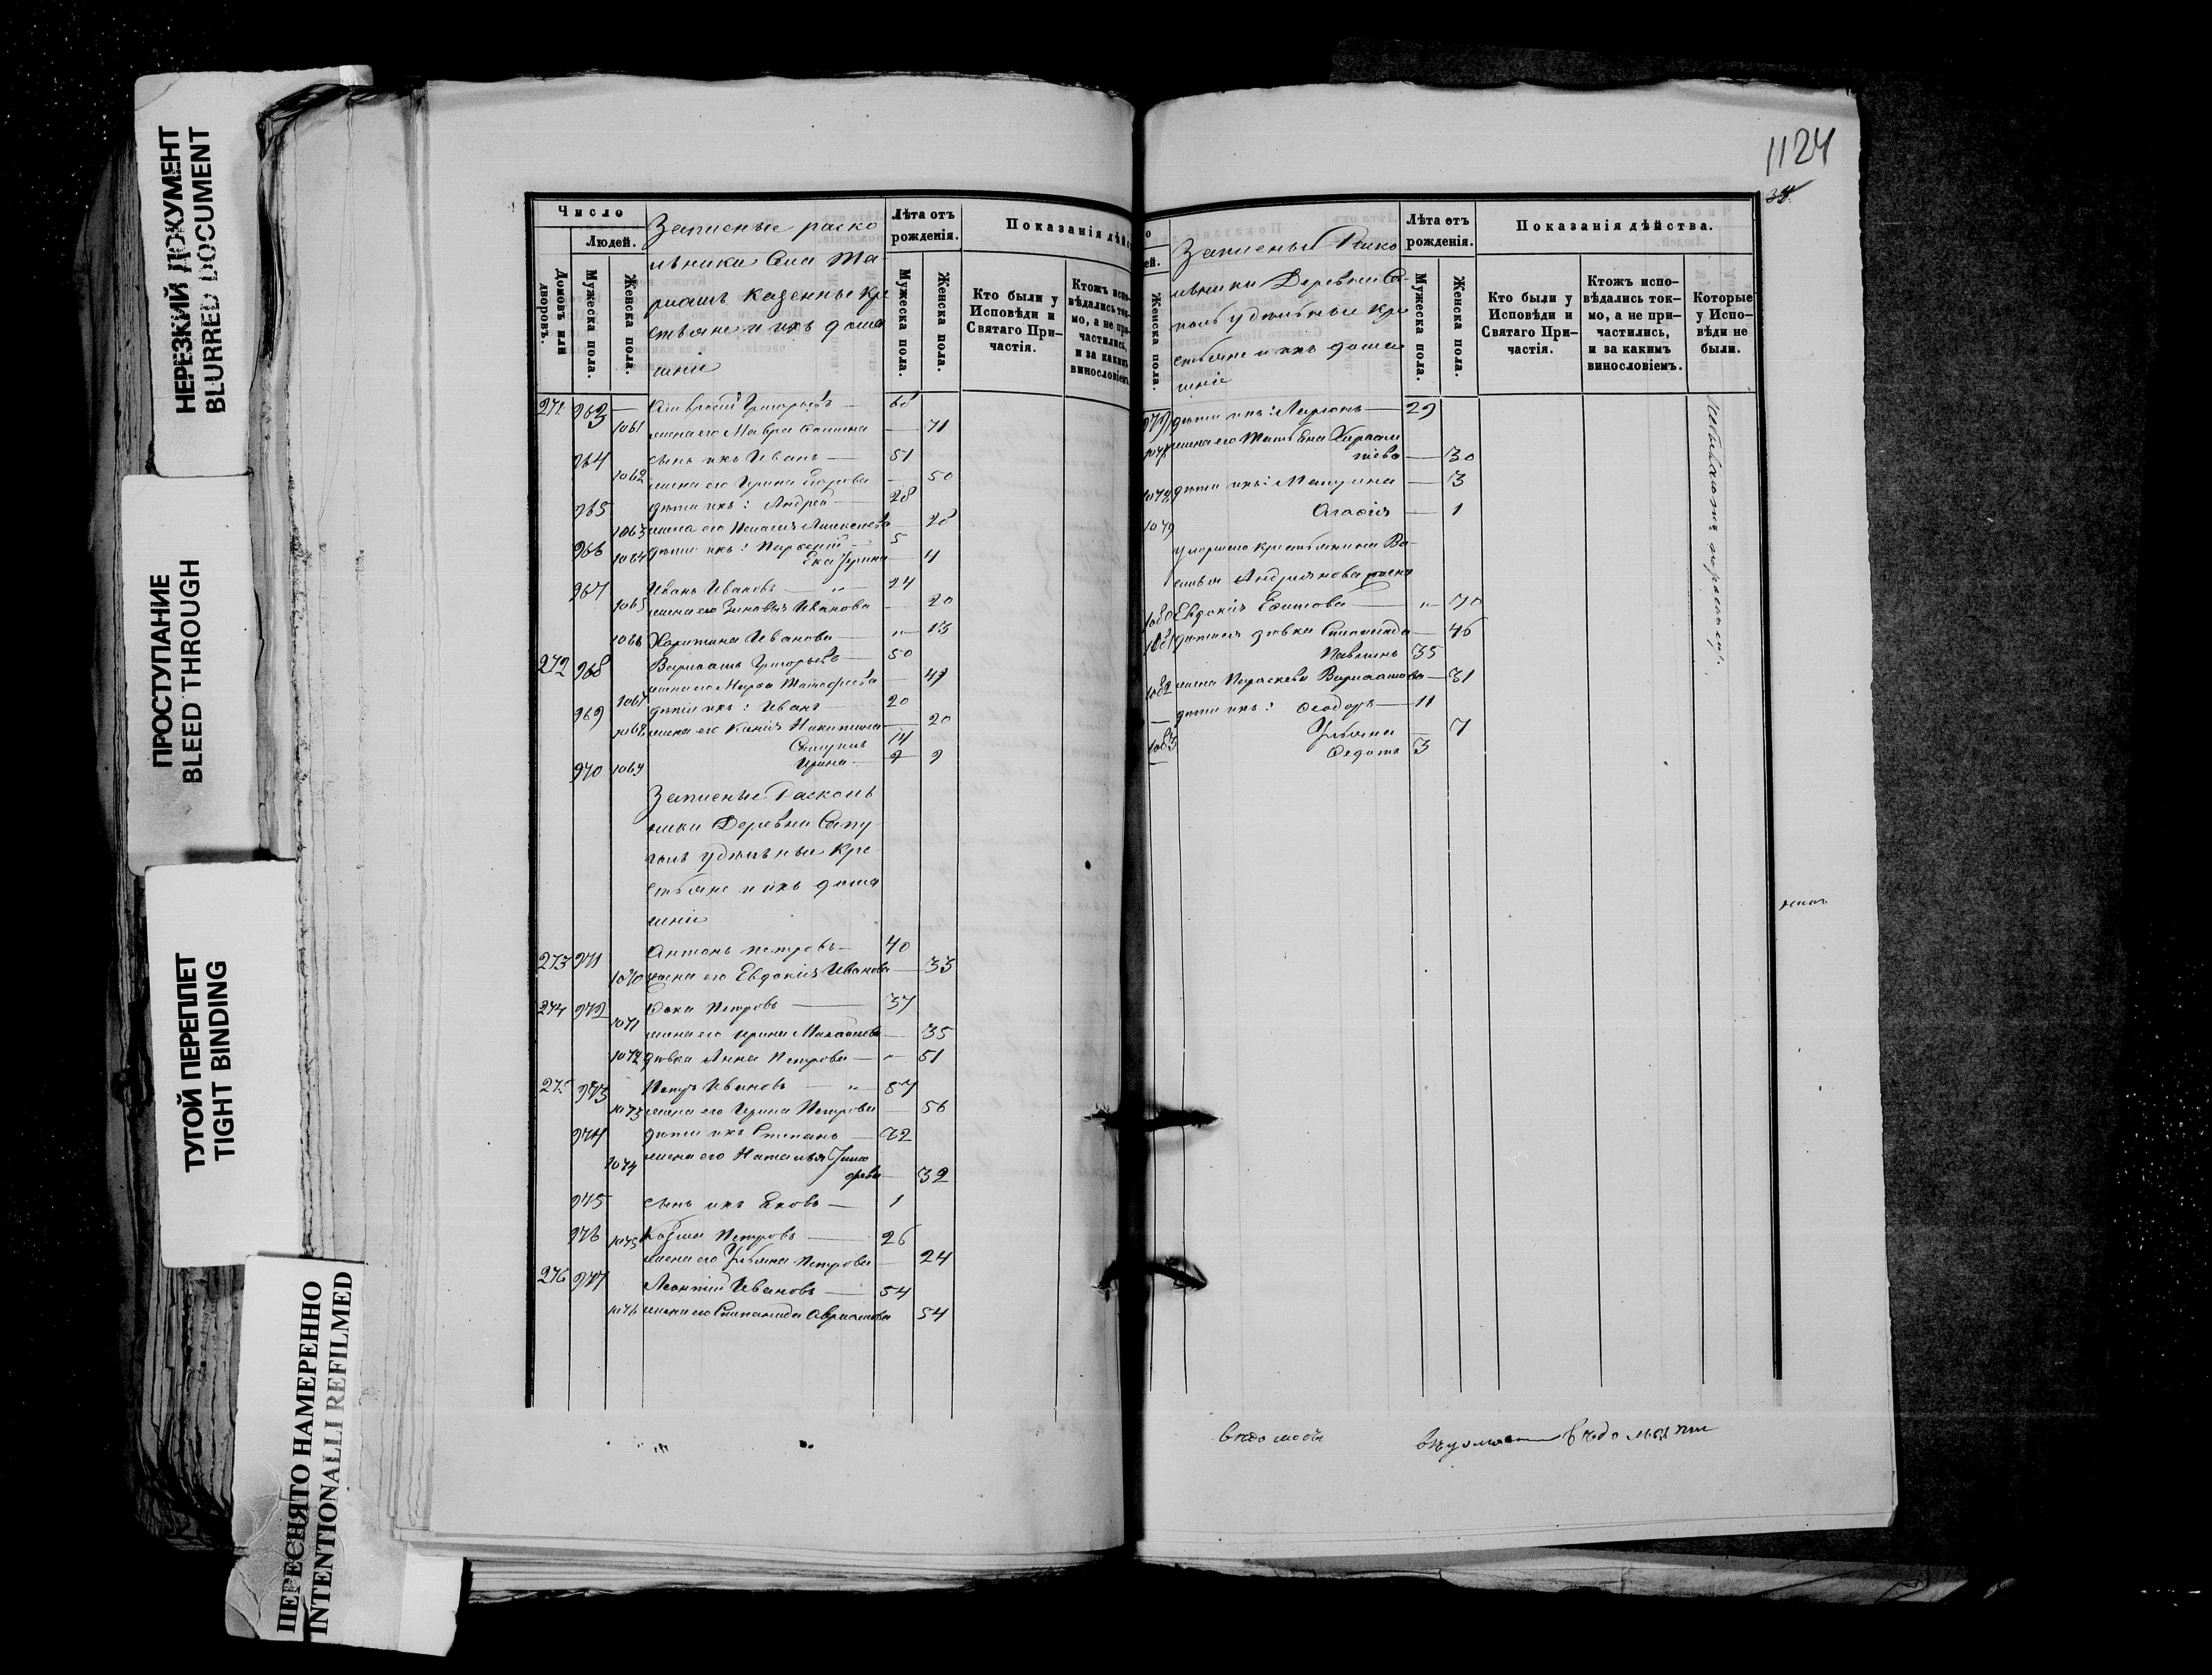 НЕРЕЗКИЙ ДОКУМЕНТ
BLURRED DOCUMENT
ПРОСТУПАНИЕ
BLEED THROUGH
ТУГОЙ ПЕРЕПЛЕТ
TIGHT BINDING
ПЕРЕСНЯТО НАМЕРЕННО
INTENTIONALLI REFILMED
Число
Людей.
Домовъ или дворовъ.
Мужеска пола.
Женска пола.
Записные раско
льники Села
казенные кре
стьяне и ихъ дома
шніе
Лѣта отъ рожденія.
Мужеска пола.
Женска пола.
Показанія дѣйс
Кто были у Исповѣди и Святаго При-частія.
Ктожъ испо-вѣдались ток-мо, а не при-частились, и за какимъ винословіемъ
271 963 — Григорьевъ — 68
1061 жена его Мавра — 71
964 сынъ ихъ Иванъ — 51
1062 жена его Ирина — 50
965 дѣти ихъ: Андрей — 28
1063 жена его Пелагея — 28
966 дѣти ихъ: — 5
1064 Екатерина — 4
967 Иванъ Ивановъ — 24
1065 жена его Зиновья Иванова — 20
1066 Харитина Иванова — 13
272 968 Варлаамъ Григорьевъ — 50
1067 жена его Марфа — 49
969 дѣти ихъ: Иванъ — 20
1068 жена его Ксенія Никитина — 20
14
970 1069 Ирина — 9
Записные Расколь
ники Деревни Сапу
голь удѣльные кре
стьяне и ихъ дома
шніе
273 971 Антонъ Петровъ — 40
1070 жена его Евдокія Иванова — 33
274 972 Фока Петровъ — 37
1071 жена его Ирина Михайлова — 35
1072 дѣвка Анна Петрова — 51
275 973 Петръ Ивановъ — 57
1073 жена его Ирина Петрова — 56
974 дѣти ихъ Степанъ — 32
1074 жена его Наталья Тимо
феева — 32
975 сынъ ихъ Яковъ — 1
976 Козьма Петровъ — 26
1075 жена его Ульяна Петрова — 24
276 977 Леонтій Ивановъ — 54
1076 жена его Степанида — 54
1124
Женска пола.
Записные Раско
льники Деревни Са-
голь удѣльные кре
стьяне и ихъ дома
шніе
Лѣта отъ рожденія.
Мужеска пола.
Женска пола.
Показанія дѣйства.
Кто были у Исповѣди и Святаго При-частія.
Ктожъ испо-вѣдались ток-мо, а не при-частились, и за какимъ винословіемъ.
Которые у Испо-вѣди не были.
дѣти ихъ: Ларіонъ — 29
1077 жена его Татьяна Харлам
піева — 30
1078 дѣти ихъ: Матрина — 3
1079 Агафія — 1
умершаго крестьянина Ва-
силья Андріянова жена
1080 Евдокія Ефимова — 70
1081 дѣти ея дѣвка Степанида — 46
35
1082 жена Парасковья Варлаамова — 31
дѣти ихъ: Ѳеодоръ — 11
1083 Ульяна — 7
Ѳедотъ 3
вѣдомости